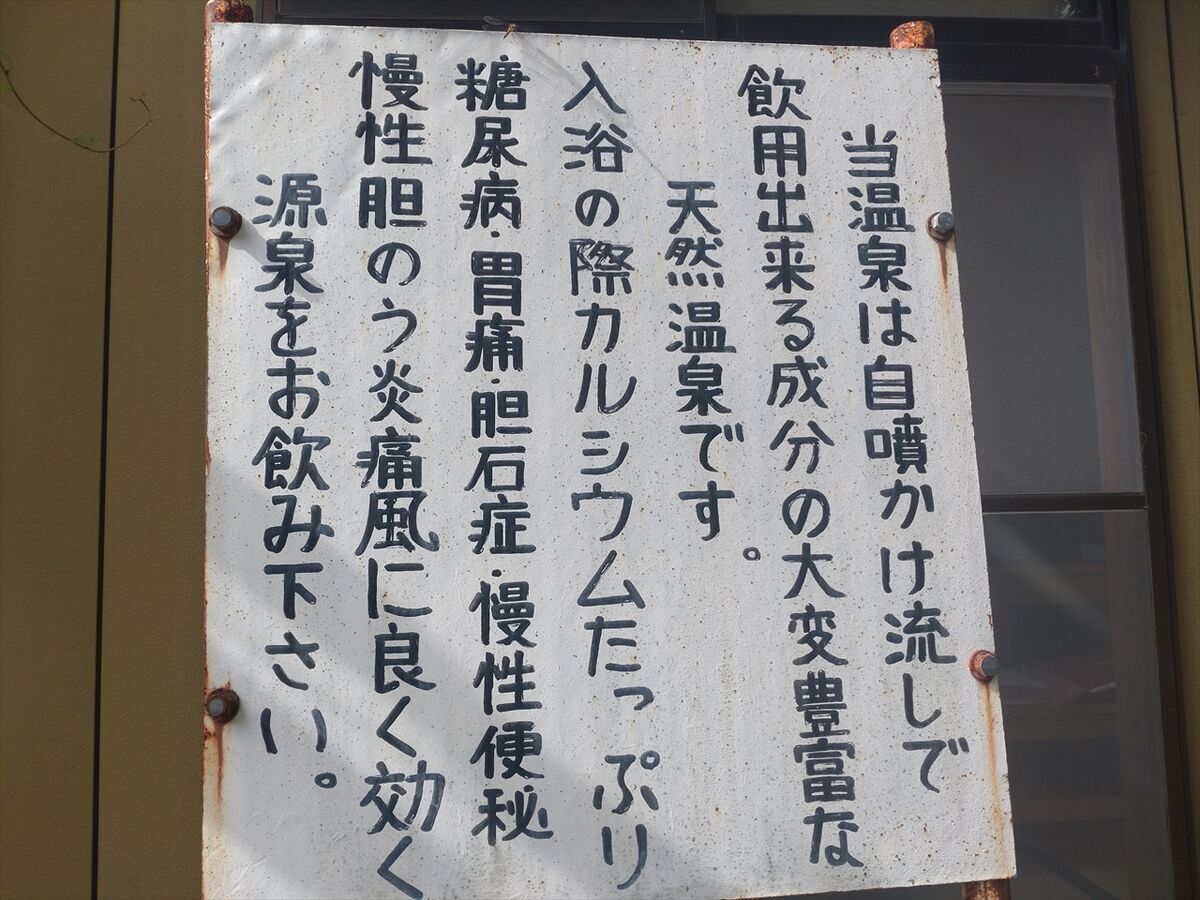 当温泉は自噴かけ流しで
飲用出来る成分の大変豊富な
天然温泉です。
入浴の際カルシウムたっぷり
糖尿病・胃痛・胆石症・慢性便秘
慢性胆のう炎痛風に良く効く
源泉をお飲み下さい。